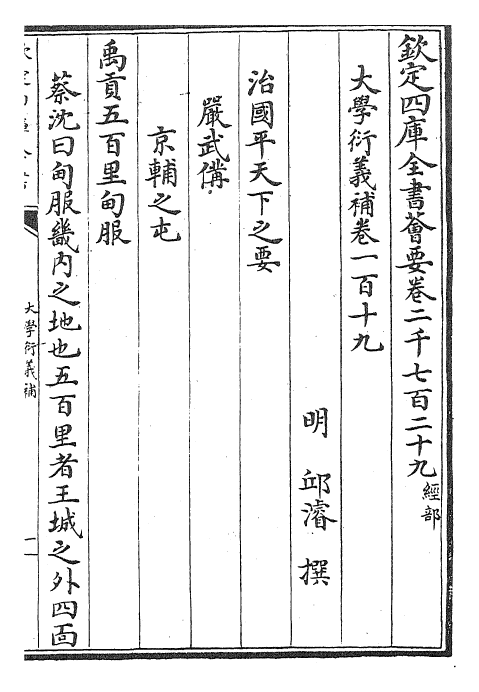 欽定四庫全書薈要卷二千七百二十九經部
大學衍義補卷一百十九
明 邱濬 撰
治國平天下之要
嚴武備
京輔之屯
禹貢五百里甸服
蔡沈曰甸服畿內之地也五百里者王城之外四面
大學衍義補
一